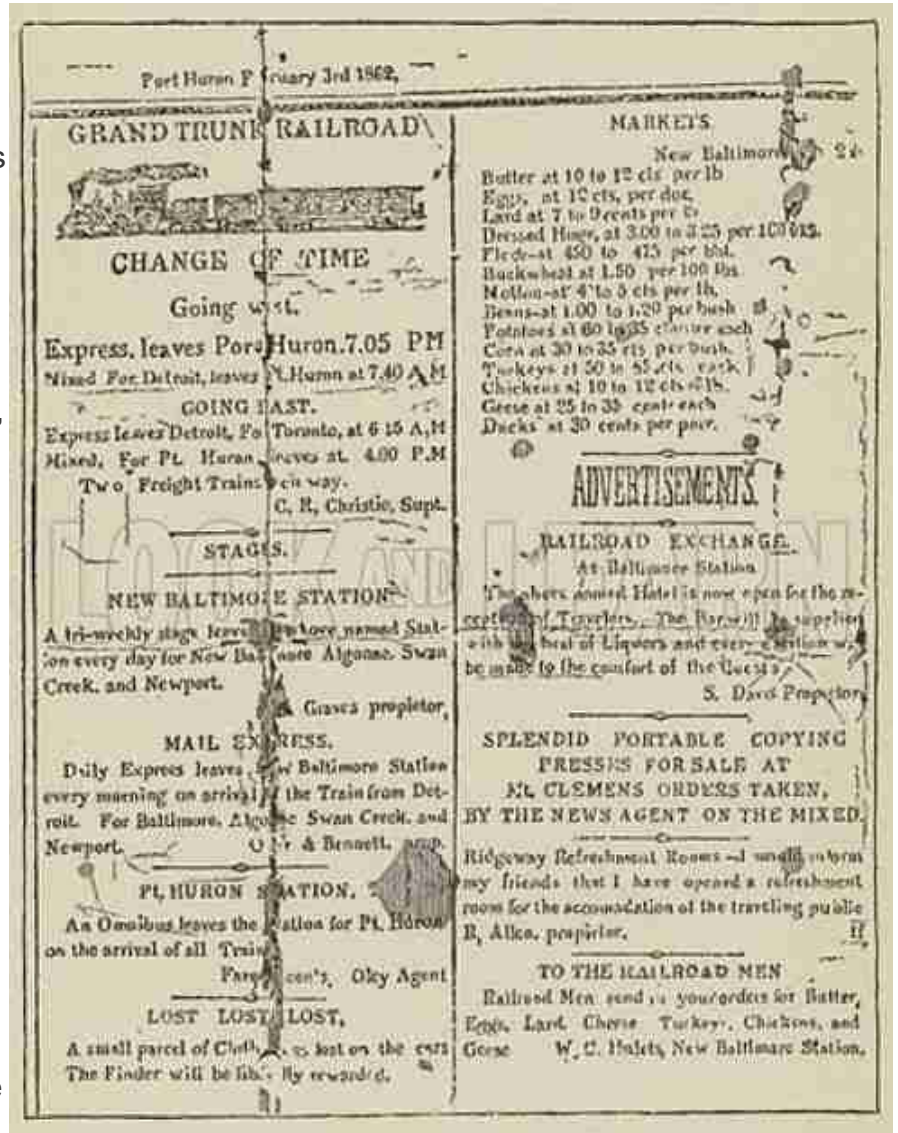 Port Huron F ruary 3rd 1862,
GRAND TRUNK RAILROAD
CHANGE OF TIME
Going west.
Express, leaves Port Huron, 7.05 PM
Mixed For Detroit, leaves Pt. Huron at 7.40 A M
GOING EAST.
Express leaves Detroit, For Toronto, at 6 15 A,M
Mixed, For Pt. Huron leaves at 4.00 P.M
Two Freight Trains each way.
C. R, Christie, Supt.
STAGES.
NEW BALTIMORE STATION
A tri-weekly stage leaves above named Stat-
ion every day for New Baltimore Algonac, Swan
Creek, and Newport.
Graves propietor,
MAIL EXPRESS.
Daily Express leaves New Baltimore Station
every morning on arrival of the Train from Det-
roit. For Baltimore, Algonac Swan Creek, and
Newport. & Bennett, prop.
Pt, HURON STATION.
An Omnibus leaves the station for Pt. Huron
on the arrival of all Trains
Fare Oky Agent
LOST LOST LOST,
A small parcel of Cloth was lost on the cars
The Finder will be liberally rewarded.
MARKETS.
New Baltimore
Butter at 10 to 12 cts per lb
Eggs, at 12 cts, per doz,
Lard at 7 to 9 cents per lb
Dressed Hogs, at 3.00 to 3 25 per 100 lbs.
at 450 to 475 per bbl.
Buckwheat at 1.50 per 100 lbs
Mutton-at 4 to 5 cts per lb,
Beans-at 1.00 to 1.20 per bush
Potatoes at 60 to 35
Corn at 30 to 35 cts per bush.
Turkeys at 50 to 65 cts each
Chickens at 10 to 12 cts
Geese at 25 to 35 cents each
Ducks at 30 cents per pair.
ADVERTISEMENTS.
RAILROAD EXCHANGE.
At Baltimore Station
The above named Hotel is now open for the re-
ception of Travelers. The Bar will be supplied
with the best of Liquors and every exertion will
be made to the comfort of the Guests
S. Davis Propietor
SPLENDID PORTABLE COPYING
PRESSES FOR SALE AT
Mt. CLEMENS ORDERS TAKEN,
BY THE NEWS AGENT ON THE MIXED.
Ridgeway Refreshment Rooms—I would inform
my friends that I have opened a refreshment
room for the accomadation of the traveling public
R, Allen, propietor.
TO THE RAILROAD MEN
Railroad Men send in your orders for Butter,
Eggs, Lard, Cheese Turkeys, Chickens, and
Geese W. C. Hulets, New Baltimore Station.
LOOK AND LEARN